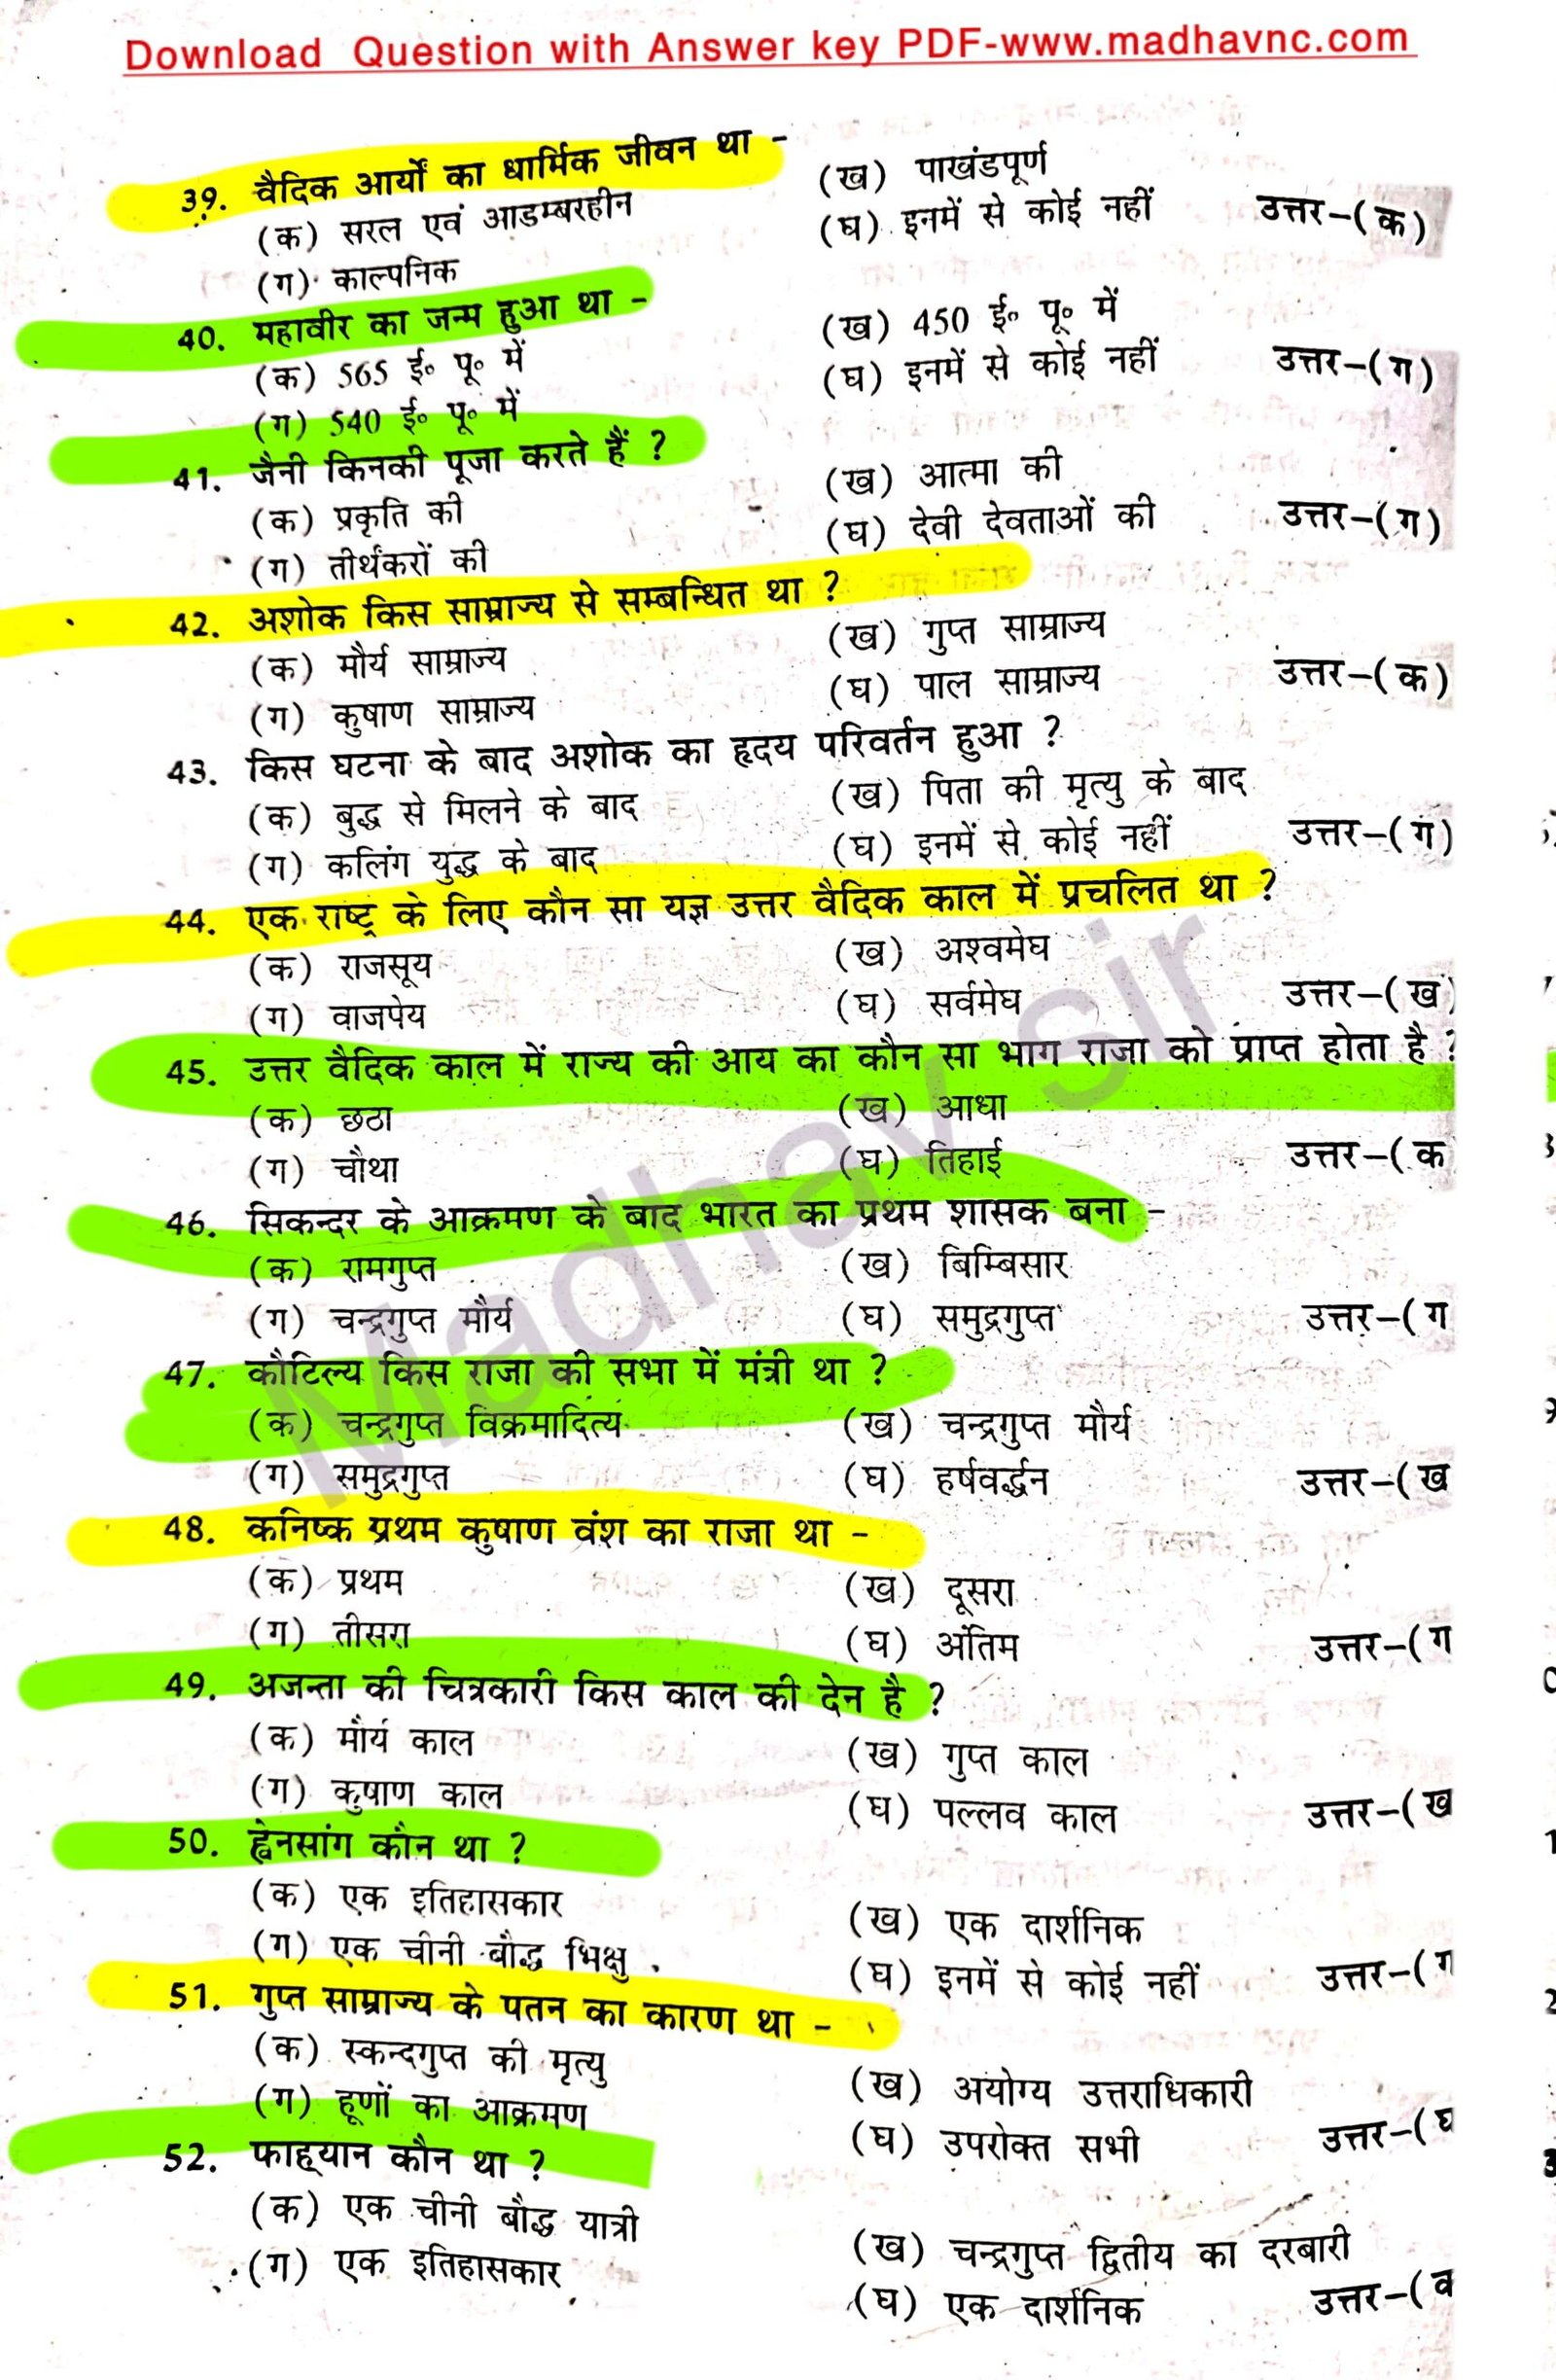 Download Question with Answer key PDF-www.madhavnc.com
39. वैदिक आर्यों का धार्मिक जीवन था -
(क) सरल एवं आडम्बरहीन (ख) पाखंडपूर्ण
(ग) काल्पनिक (घ) इनमें से कोई नहीं उत्तर–(क)
40. महावीर का जन्म हुआ था -
(क) 565 ई॰ पू॰ में (ख) 450 ई॰ पू॰ में
(ग) 540 ई॰ पू॰ में (घ) इनमें से कोई नहीं उत्तर–(ग)
41. जैनी किनकी पूजा करते हैं ?
(क) प्रकृति की (ख) आत्मा की
(ग) तीर्थंकरों की (घ) देवी देवताओं की उत्तर–(ग)
42. अशोक किस साम्राज्य से सम्बन्धित था ?
(क) मौर्य साम्राज्य (ख) गुप्त साम्राज्य
(ग) कुषाण साम्राज्य (घ) पाल साम्राज्य उत्तर–(क)
43. किस घटना के बाद अशोक का हृदय परिवर्तन हुआ ?
(क) बुद्ध से मिलने के बाद (ख) पिता की मृत्यु के बाद
(ग) कलिंग युद्ध के बाद (घ) इनमें से कोई नहीं उत्तर–(ग)
44. एक राष्ट्र के लिए कौन सा यज्ञ उत्तर वैदिक काल में प्रचलित था ?
(क) राजसूय (ख) अश्वमेघ
(ग) वाजपेय (घ) सर्वमेघ उत्तर–(ख)
45. उत्तर वैदिक काल में राज्य की आय का कौन सा भाग राजा को प्राप्त होता है ?
(क) छठा (ख) आधा
(ग) चौथा (घ) तिहाई उत्तर–(क
46. सिकन्दर के आक्रमण के बाद भारत का प्रथम शासक बना -
(क) रामगुप्त (ख) बिम्बिसार
(ग) चन्द्रगुप्त मौर्य (घ) समुद्रगुप्त उत्तर–(ग
47. कौटिल्य किस राजा की सभा में मंत्री था ?
(क) चन्द्रगुप्त विक्रमादित्य (ख) चन्द्रगुप्त मौर्य
(ग) समुद्रगुप्त (घ) हर्षवर्द्धन उत्तर–(ख
48. कनिष्क प्रथम कुषाण वंश का राजा था -
(क) प्रथम (ख) दूसरा
(ग) तीसरा (घ) अंतिम उत्तर–(ग
49. अजन्ता की चित्रकारी किस काल की देन है ?
(क) मौर्य काल (ख) गुप्त काल
(ग) कुषाण काल (घ) पल्लव काल उत्तर–(ख
50. ह्वेनसांग कौन था ?
(क) एक इतिहासकार (ख) एक दार्शनिक
(ग) एक चीनी बौद्ध भिक्षु (घ) इनमें से कोई नहीं उत्तर–(ग
51. गुप्त साम्राज्य के पतन का कारण था -
(क) स्कन्दगुप्त की मृत्यु (ख) अयोग्य उत्तराधिकारी
(ग) हूणों का आक्रमण (घ) उपरोक्त सभी उत्तर–(घ
52. फाह्यान कौन था ?
(क) एक चीनी बौद्ध यात्री (ख) चन्द्रगुप्त द्वितीय का दरबारी
(ग) एक इतिहासकार (घ) एक दार्शनिक उत्तर–(
Madhav sir